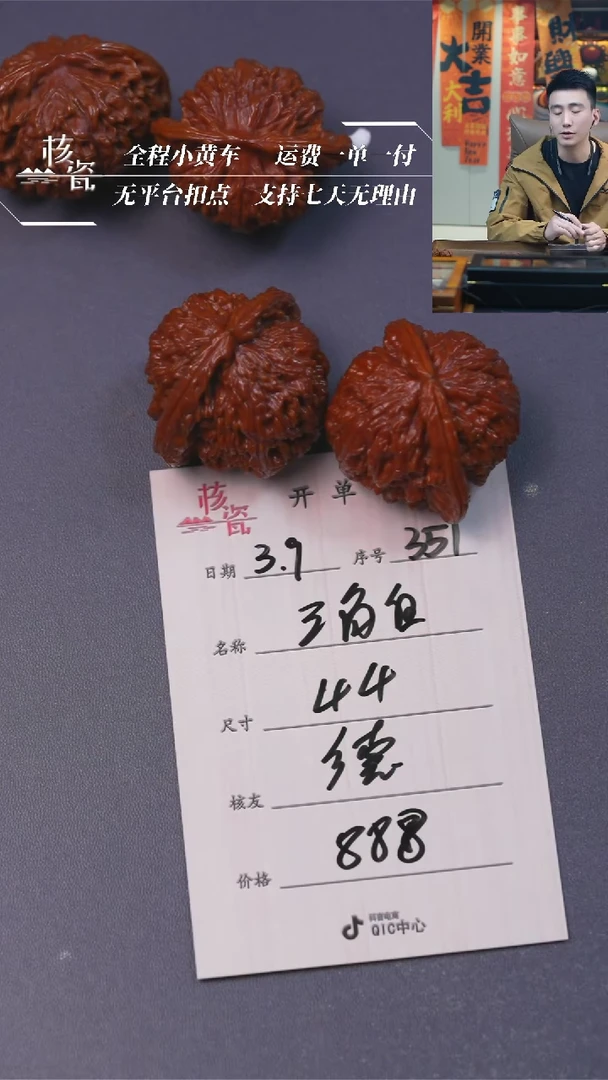 核瓷
全程小黄车 运费一单一付
无平台扣点 支持七天无理由
開業大吉
大利
事事如意
财
核瓷 开单
日期 3.9 序号 351
名称 三角白
尺寸 44
核友 德
价格 888
抖音电商
QIC中心